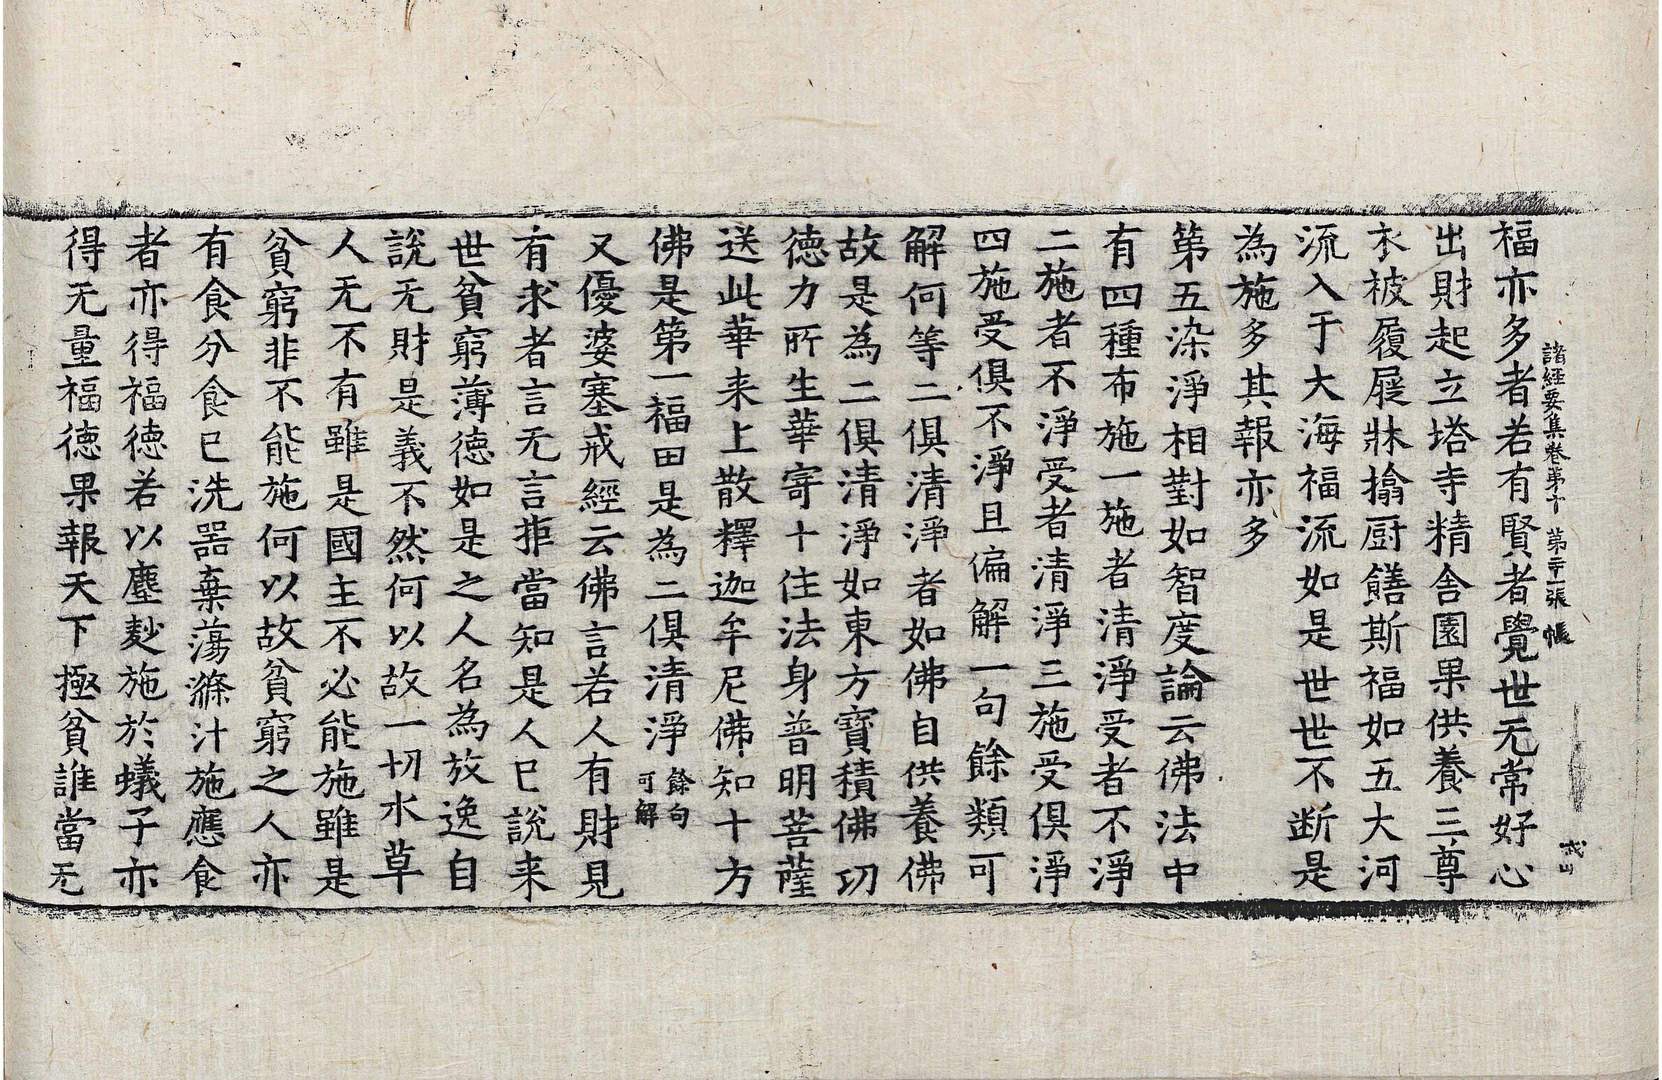 諸經要集卷第十 第二十張 帳
福亦多者若有賢者覺世无常好心
出財起立塔寺精舍園果供養三尊
衣被履屣牀㯓厨饍斯福如五大河
流入于大海福流如是世世不断是
為施多其報亦多
第五染淨相對如智度論云佛法中
有四種布施一施者清淨受者不淨
二施者不淨受者清淨三施受俱淨
四施受俱不淨且偏解一句餘類可
解何等二俱清淨者如佛自供養佛
故是為二俱清淨如東方寶積佛功
德力所生華寄十住法身普明菩薩
送此華来上散釋迦牟尼佛知十方
佛是第一福田是為二俱清淨餘句可解
又優婆塞戒經云佛言若人有財見
有求者言无言拒當知是人已說来
世貧窮薄德如是之人名為放逸自
說无財是義不然何以故一切水草
人无不有雖是國主不必能施雖是
貧窮非不能施何以故貧窮之人亦
有食分食已洗器棄蕩滌汁施應食
者亦得福德若以塵麨施於蟻子亦
得无量福德果報天下極貧誰當无